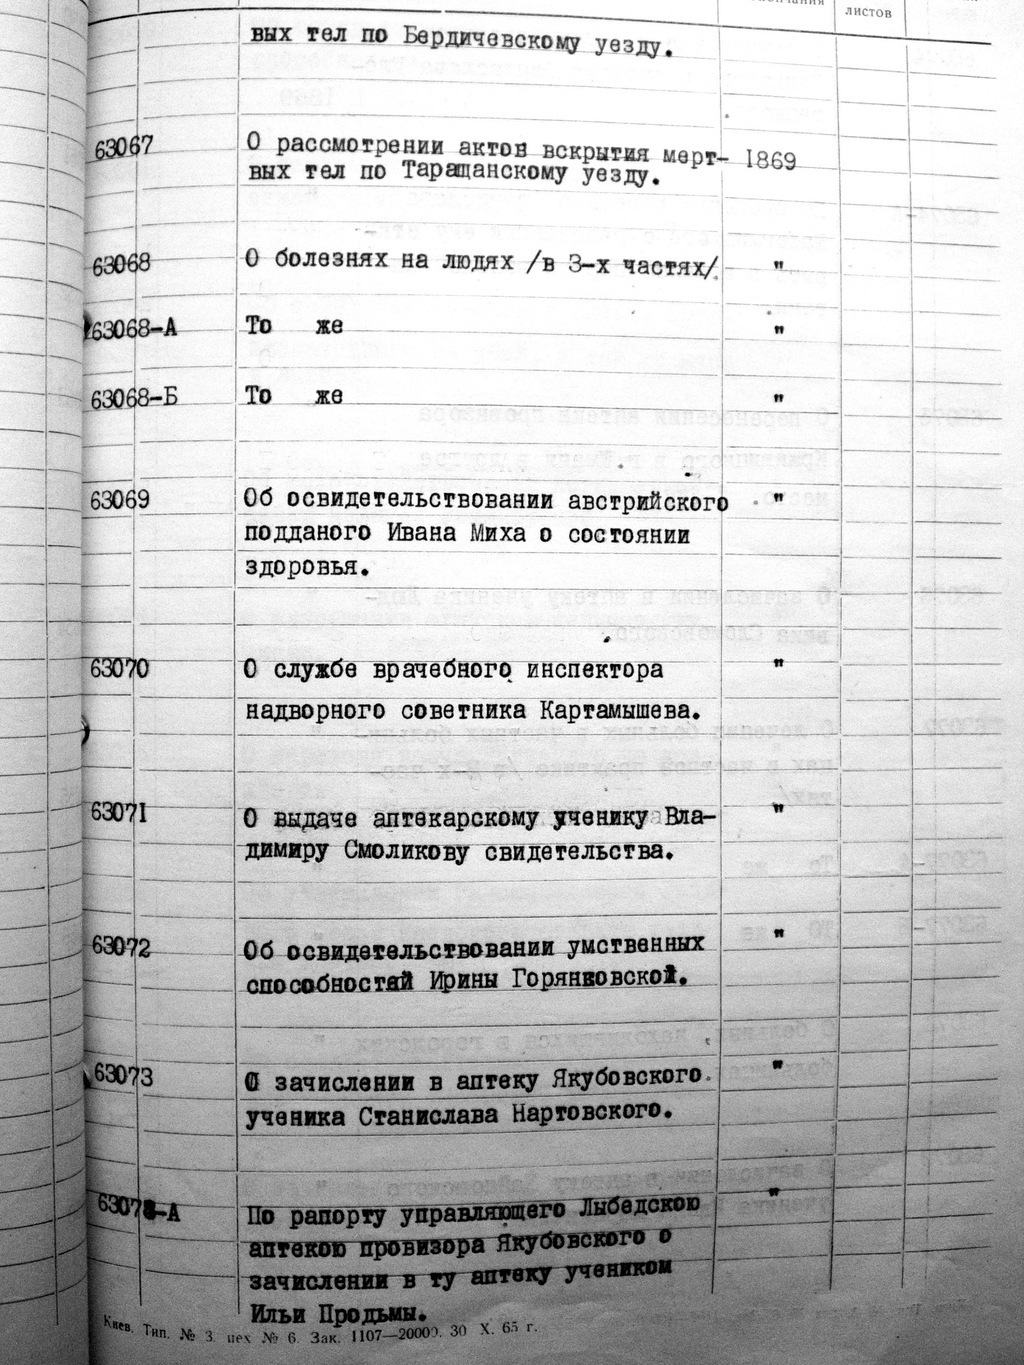 листов
вых тел по Бердичевскому уезду.
63067 О рассмотрении актов вскрытия мерт- 1869
вых тел по Таращанскому уезду.
63068 О болезнях на людях /в 3-х частях/ "
63068-А То же "
63068-Б То же "
63069 Об освидетельствовании австрийского "
подданого Ивана Миха о состоянии
здоровья.
63070 О службе врачебного инспектора "
надворного советника Картамышева.
63071 О выдаче аптекарскому ученику Вла- "
димиру Смоликову свидетельства.
63072 Об освидетельствовании умственных "
способностей Ирины Горянковской.
63073 О зачислении в аптеку Якубовского "
ученика Станислава Нартовского.
63073-А По рапорту управляющего Лыбедскою "
аптекою провизора Якубовского о
зачислении в ту аптеку учеником
Ильи Продьмы.
Киев. Тип. № 3. цех № 6. Зак. 1107—20000. 30 X. 65 г.